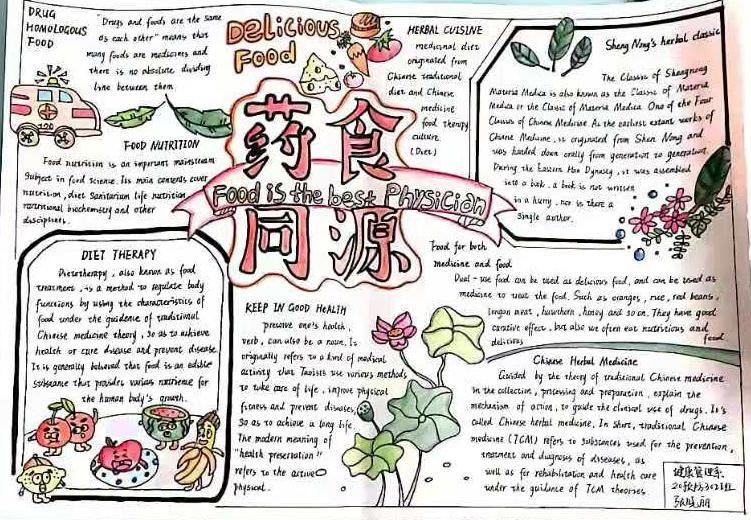 DRUG
HOMOLOGOUS
FOOD
"Drugs and foods are the same
as each other" means that
many foods are medicines and
there is no absolute dividing
line between them
Delicious
Food
HERBAL CUISINE
medicinal diet
originated from
Chinese traditional
diet and Chinese
medicine
food therapy
culture
(Diet)
Sheng Nong's herbal classic
The Classics of Shengnong
Materia Medica is also known as the Classic of Materia
Medica or the Classic of Materia Medica One of the Four
Classics of Chinese Medicine As the earliest extant works of
Chinese Medicine, it originated from Shen Nong and
was handed down orally from generation to generation.
During the Eastern Han Dynasty, it was assembled
into a book. a book is not written
in a hurry, nor is there a
single author.
120
FOOD NUTRITION
Food nutrition is an important mainstream
Subject in food science. Its main contents cover
nutrition, diet Sanitarium life nutrition
nutritional biochemistry and other
disciplines.
药食
Food is the best Physician
同源
DIET THERAPY
Dietotherapy, also known as food
treatment, is a method to regulate body
functions by using the characteristics of
food under the guidance of traditional
Chinese medicine theory, so as to achieve
health or cure disease and prevent disease.
It is generally believed that food is an edible
substance that provides various nutrience for
the human body's growth.
KEEP IN GOOD HeALTH
preserve one's health,
verb, can also be a noun. Is
originally refers to a kind of medical
activity that Taoists use various methods
to take care of life, improve physical
fitness and prevent diseases,
so as to achieve a long life.
The modern meaning of
"health preservation"
refers to the active
physical.
Food for both
medicine and food
Dual-use food can be used as delicious food, and can be used as
medicine to treat the food. Such as oranges, rice, red beans,
longan meat, hawthorn, honey and so on. They have good
curative effect, but also we often eat nutritious and
delicious food
Chinese Herbal Medicine
Guided by the theory of traditional Chinese medicine
in the collection, processing and preparation, explain the
mechanism of action, to guide the clinical use of drugs. It's
called Chinese herbal medicine. In short, traditional Chinese
medicine (TCM) refers to substances used for the prevention,
treatment and diagnosis of diseases, as
well as for rehabilitation and health care
under the guidance of TCM theories
健康管理系
302班